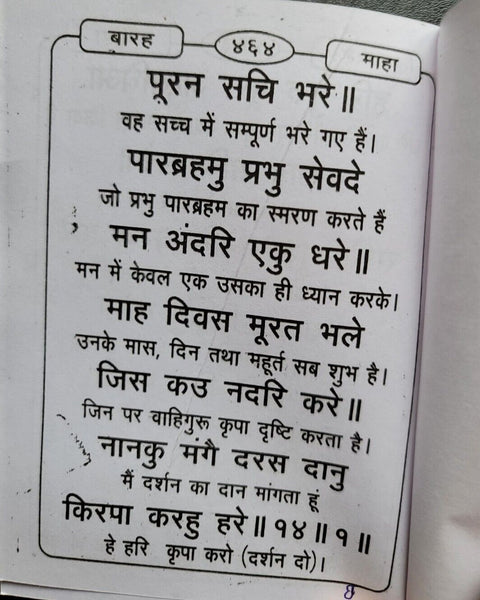 बारह
४६४
माहा
पूरन सचि भरे॥
वह सच्च में सम्पूर्ण भरे गए हैं।
पारब्रहमु प्रभु सेवदे
जो प्रभु पारब्रहम का स्मरण करते हैं
मन अंदरि एकु धरे॥
मन में केवल एक उसका ही ध्यान करके।
माह दिवस मूरत भले
उनके मास, दिन तथा महूर्त सब शुभ है।
जिस कउ नदरि करे॥
जिन पर वाहिगुरू कृपा दृष्टि करता है।
नानकु मंगै दरस दानु
मैं दर्शन का दान मांगता हूं
किरपा करहु हरे॥१४॥१॥
हे हरि कृपा करो (दर्शन दो)।